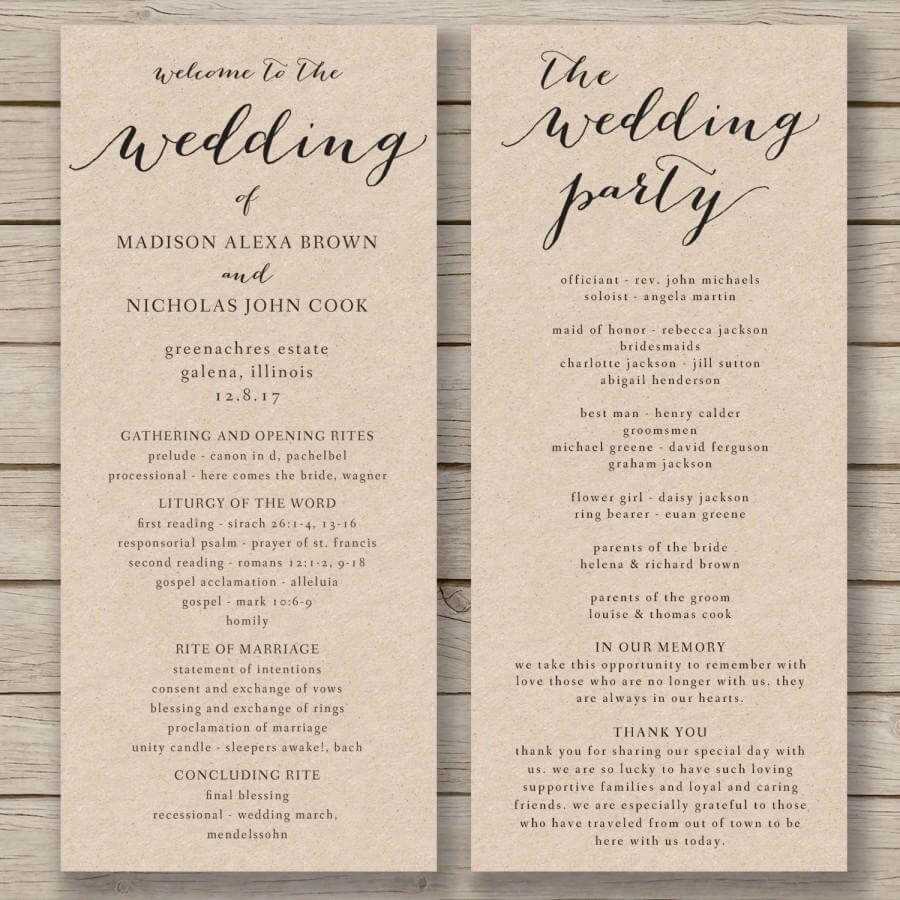 welcome to the
wedding
of
MADISON ALEXA BROWN
and
NICHOLAS JOHN COOK
greenachres estate
galena, illinois
12.8.17
GATHERING AND OPENING RITES
prelude - canon in d, pachelbel
processional - here comes the bride, wagner
LITURGY OF THE WORD
first reading - sirach 26:1-4, 13-16
responsorial psalm - prayer of st. francis
second reading - romans 12:1-2, 9-18
gospel acclamation - alleluia
gospel - mark 10:6-9
homily
RITE OF MARRIAGE
statement of intentions
consent and exchange of vows
blessing and exchange of rings
proclamation of marriage
unity candle - sleepers awake!, bach
CONCLUDING RITE
final blessing
recessional - wedding march,
mendelssohn
the
wedding
party
officiant - rev. john michaels
soloist - angela martin
maid of honor - rebecca jackson
bridesmaids
charlotte jackson - jill sutton
abigail henderson
best man - henry calder
groomsmen
michael greene - david ferguson
graham jackson
flower girl - daisy jackson
ring bearer - euan greene
parents of the bride
helena & richard brown
parents of the groom
louise & thomas cook
IN OUR MEMORY
we take this opportunity to remember with
love those who are no longer with us. they
are always in our hearts.
THANK YOU
thank you for sharing our special day with
us. we are so lucky to have such loving
supportive families and loyal and caring
friends. we are especially grateful to those
who have traveled from out of town to be
here with us today.